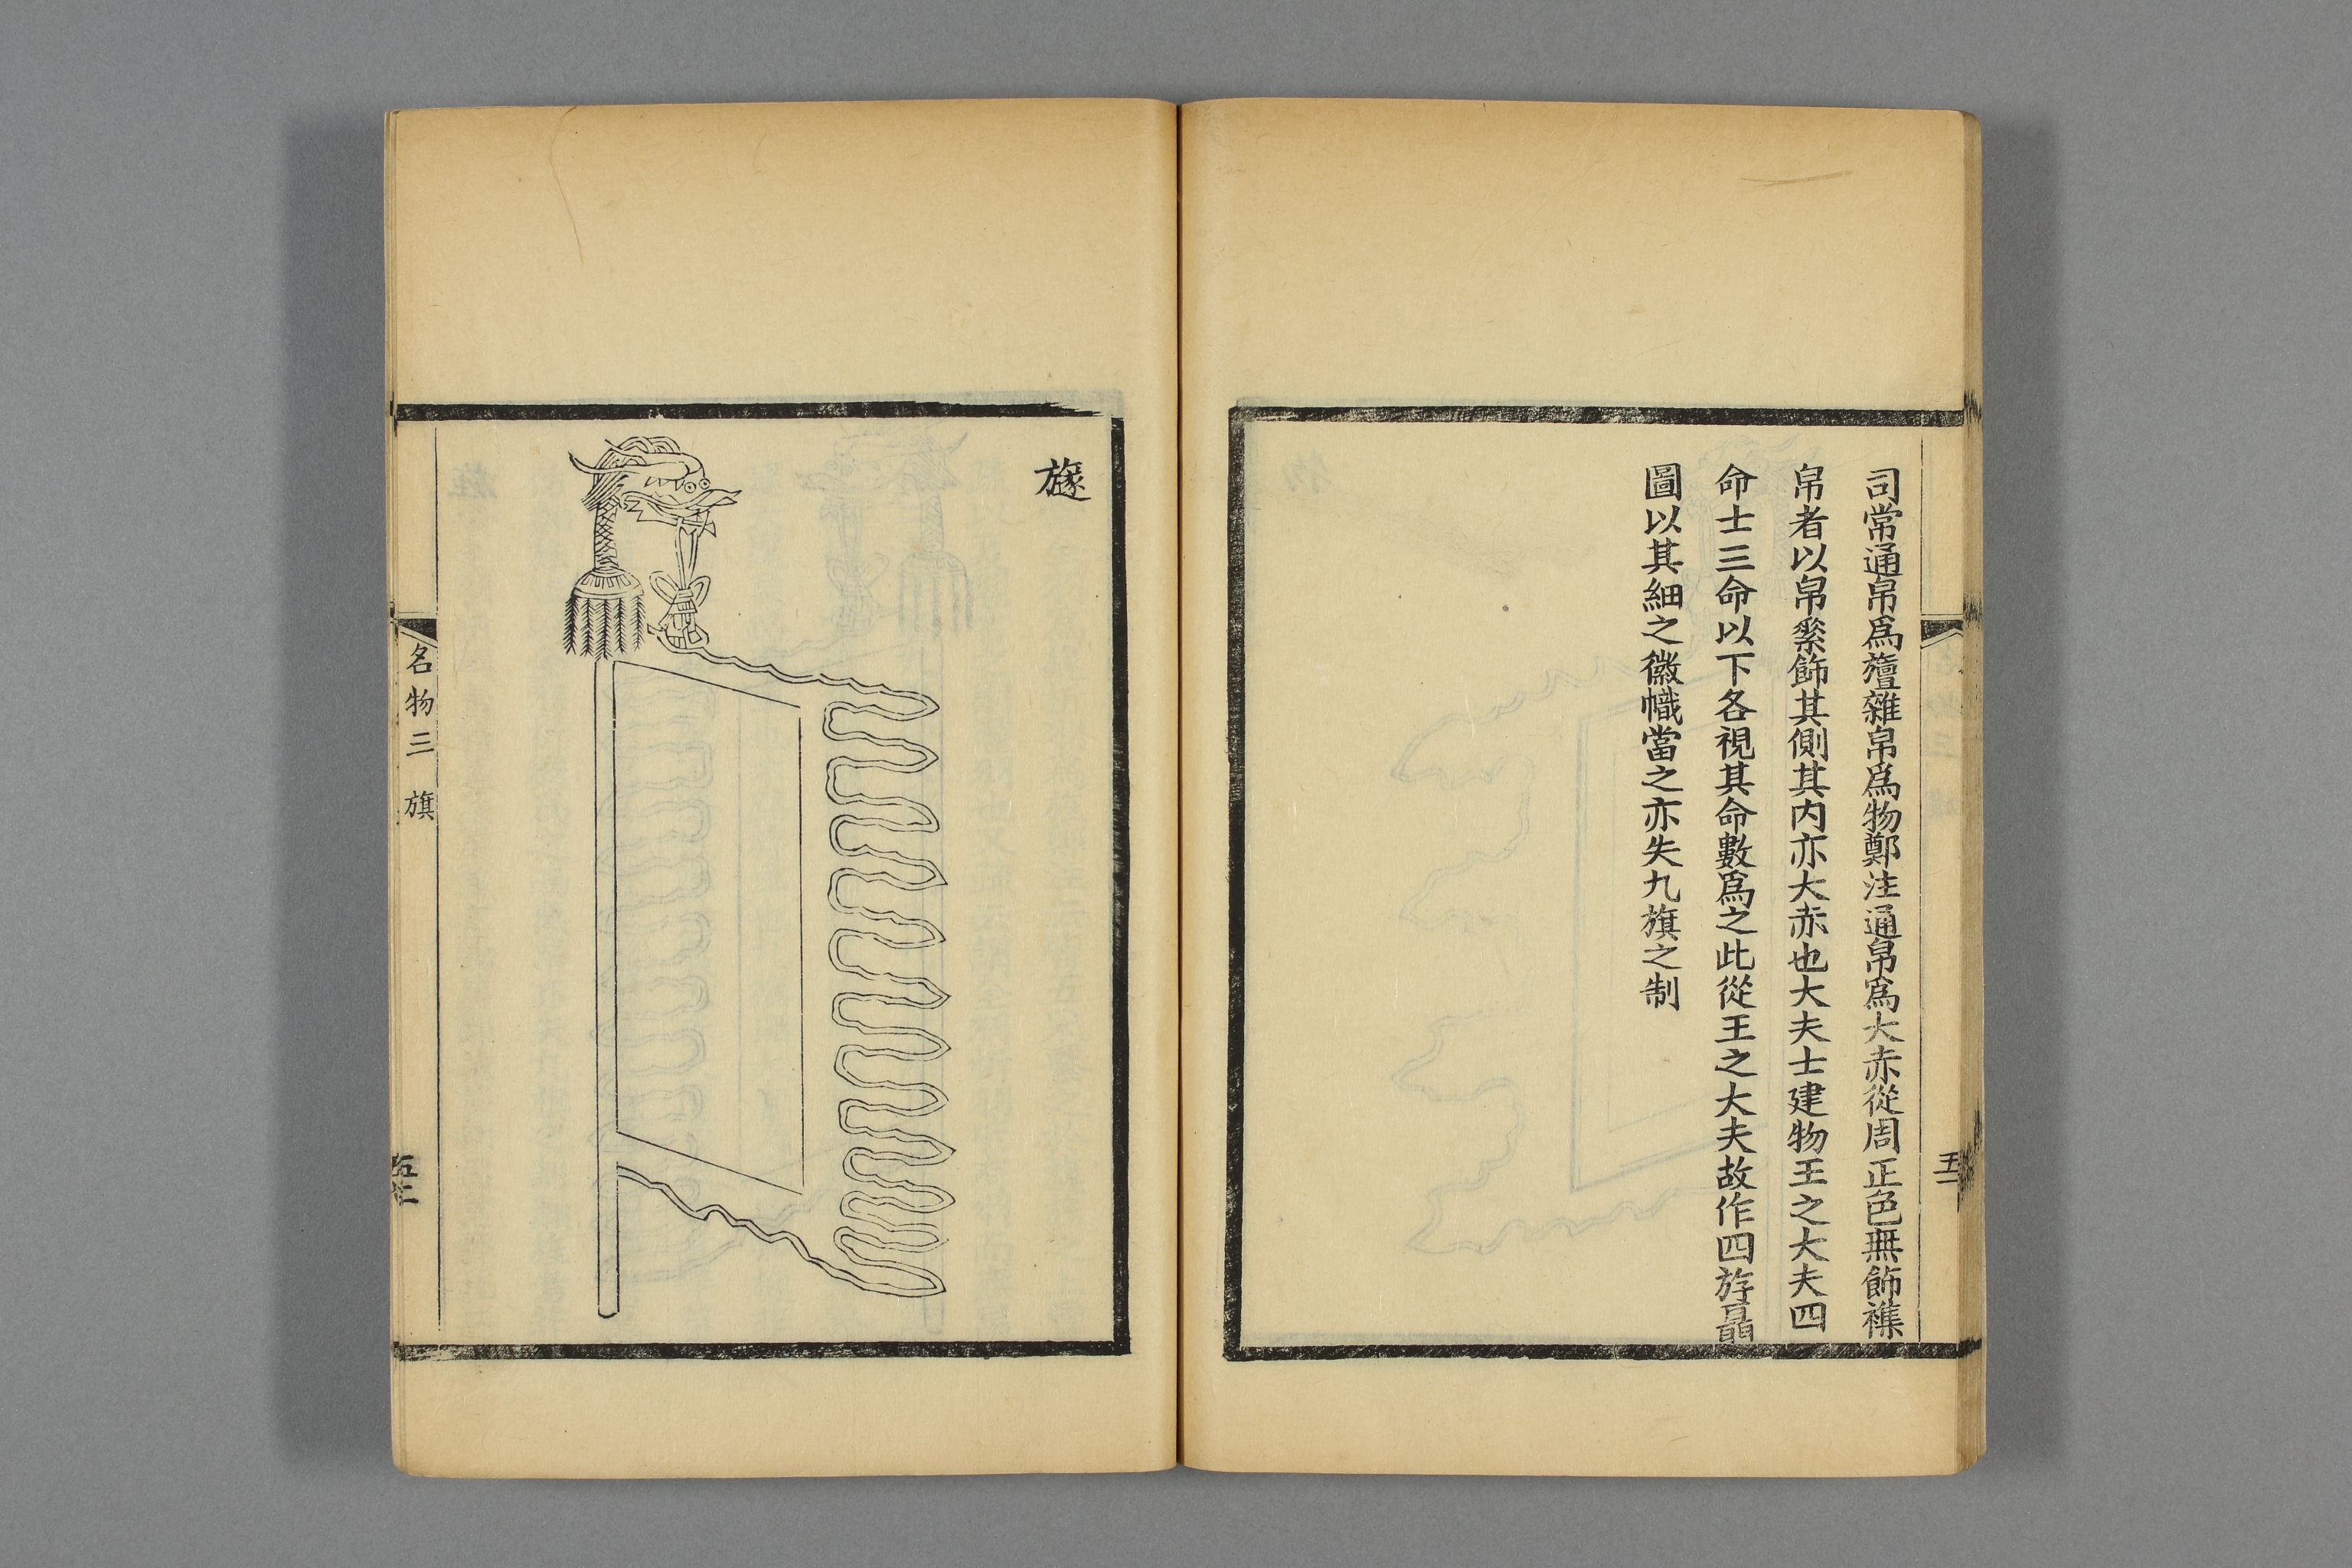 司常通帛爲旜雜帛爲物鄭注通帛爲大赤從周正色無飾襍
帛者以帛緣飾其側其内亦大赤也大夫士建物王之大夫四
命士三命以下各視其命數爲之此從王之大夫故作四斿聶
圖以其細之徽幟當之亦失九旗之制
五二
旞
名物三 旗